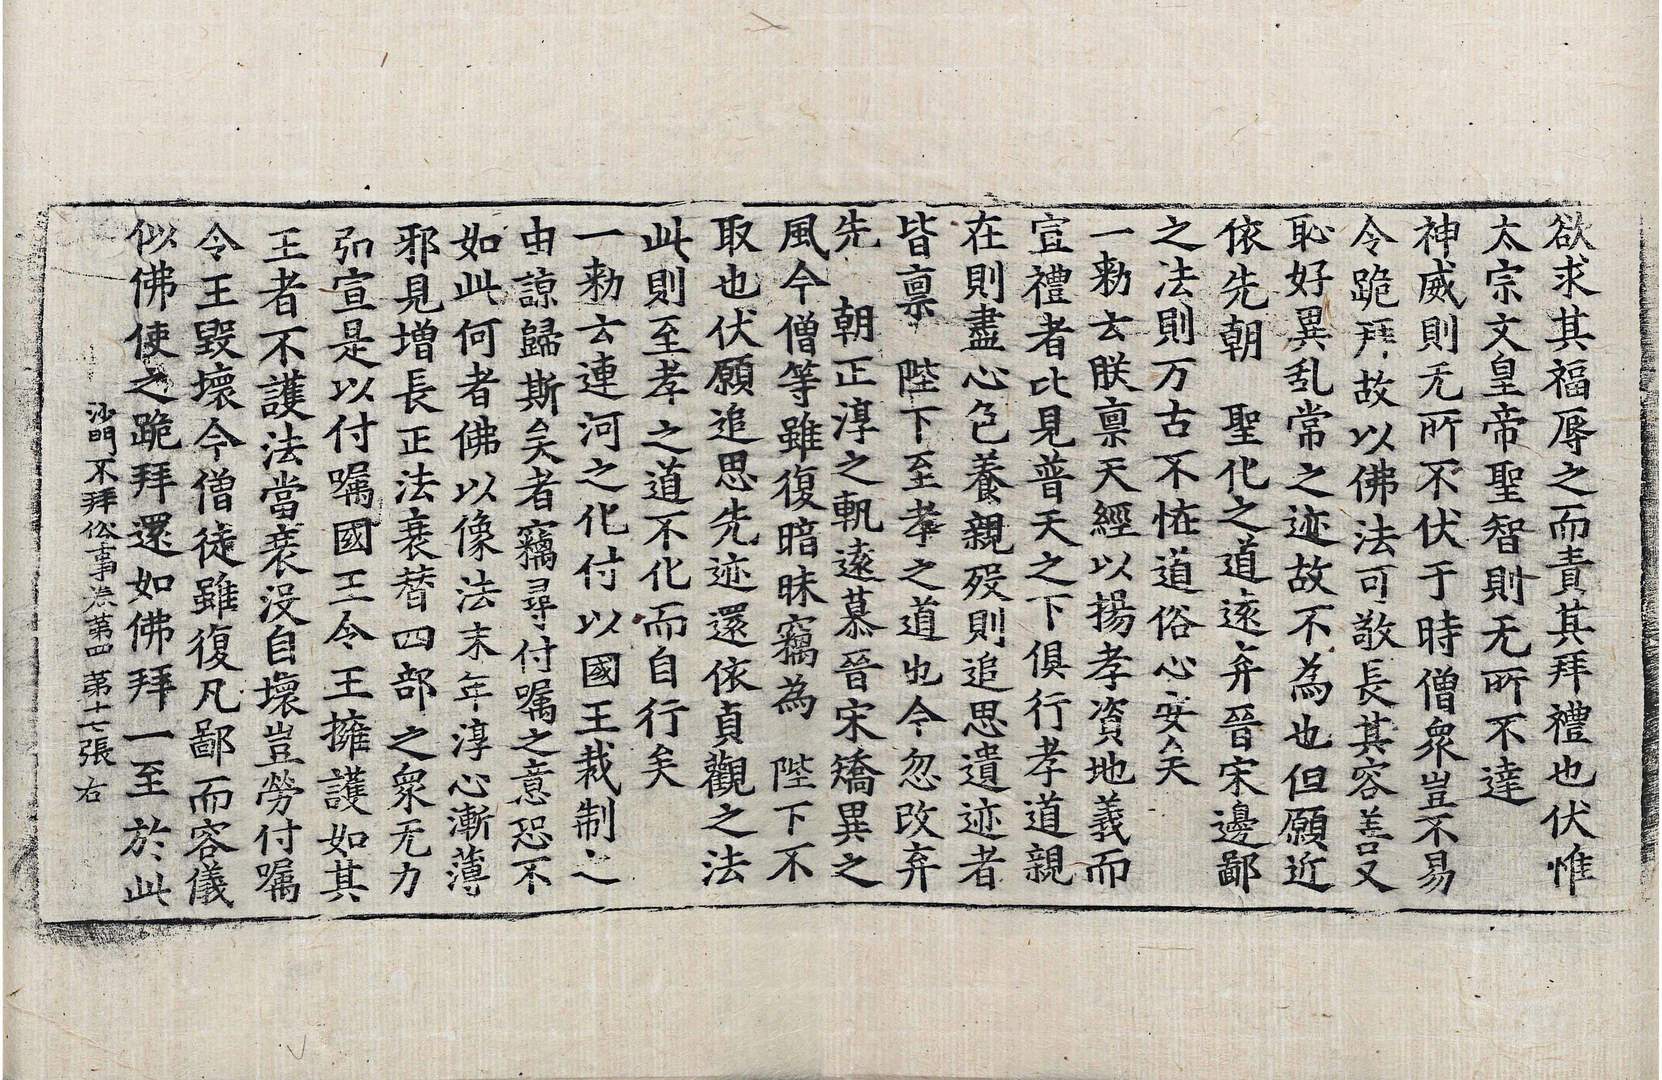 欲求其福辱之而責其拜禮也伏惟
太宗文皇帝聖智則无所不達
神威則无所不伏于時僧衆豈不易
令跪拜故以佛法可敬長其容善又
恥好異乱常之迹故不為也但願近
依先朝　聖化之道遠弃晉宋邊鄙
之法則万古不恠道俗心安矣
一勑云朕禀天經以揚孝資地義而
宣禮者比見普天之下俱行孝道親
在則盡心色養親歿則追思遺迹者
皆禀　陛下至孝之道也今忽改弃
先　朝正淳之軌遠慕晉宋矯異之
風今僧等雖復暗昧竊為　陛下不
取也伏願追思先迹還依貞觀之法
此則至孝之道不化而自行矣
一勑云連河之化付以國王裁制之
由諒歸斯矣者竊尋付囑之意恐不
如此何者佛以像法末年淳心漸薄
邪見增長正法衰替四部之衆无力
弘宣是以付囑國王令王擁護如其
王者不護法當衰沒自壞豈勞付囑
令王毀壞今僧徒雖復凡鄙而容儀
似佛使之跪拜還如佛拜一至於此
沙門不拜俗事卷第四　第十七張　右